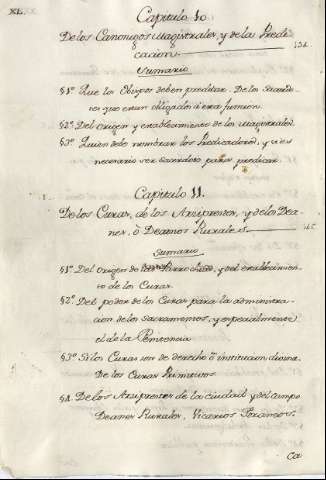 XL.
Capitulo 10.
De los Canonigos Magistrales, y de la Predi-
cacion
Sumario
§1º Que los Obispos deben predicar. De los Sacerdo-
tes que estan obligados á esta funcion.
§2º Del origen y establecimiento de los Magistrales.
§3º Quien debe nombrar los Predicadores, y si es
necesario ser Sacerdote para predicar
Capitulo 11.
De los Curas, de los Arciprestes, y de los Dea-
nes, ò Deanos Rurales
Sumario
§1º Del Origen de las Parrochias, y del establecimien-
to de los Curas.
§2º Del poder de los Curas para la administra-
cion de los Sacramentos, y especialmente
el de la Penitencia
§3º Si los Curas son de derecho ò institucion divina.
De los Curas Primitivos
§4. De los Arciprestes de la ciudad y del campo
Deanos Rurales, Vicarios Foraneos.
Ca